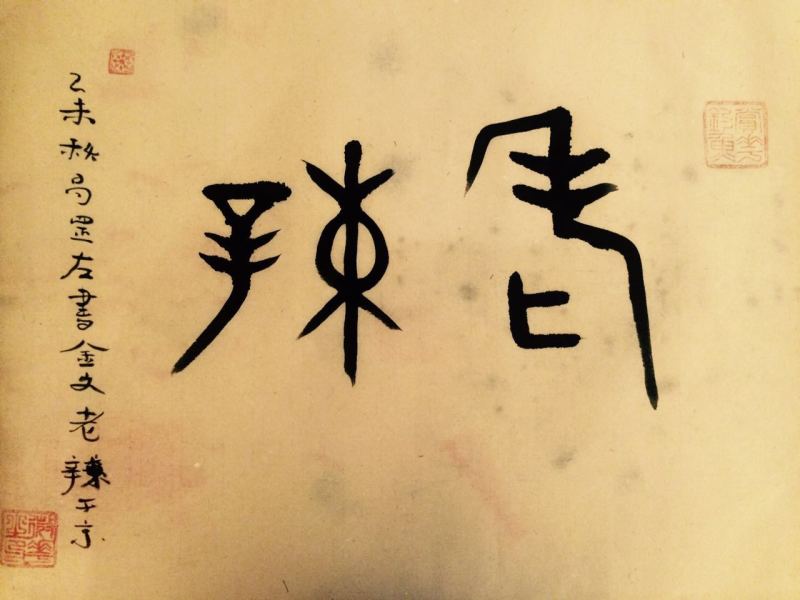 老辣
乙未 罡左書金文老辣于京